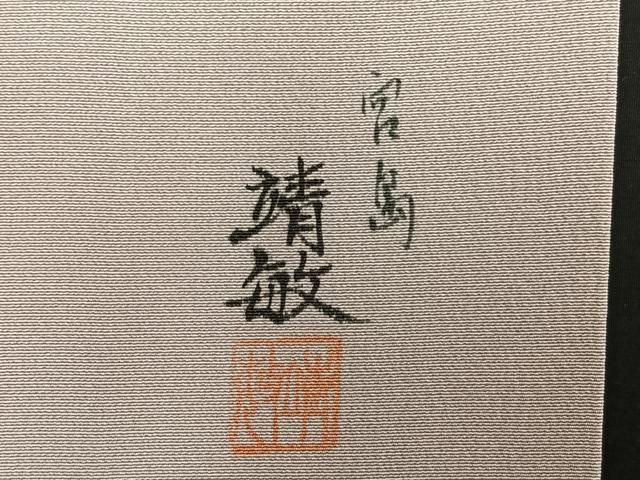 宮島
靖敏